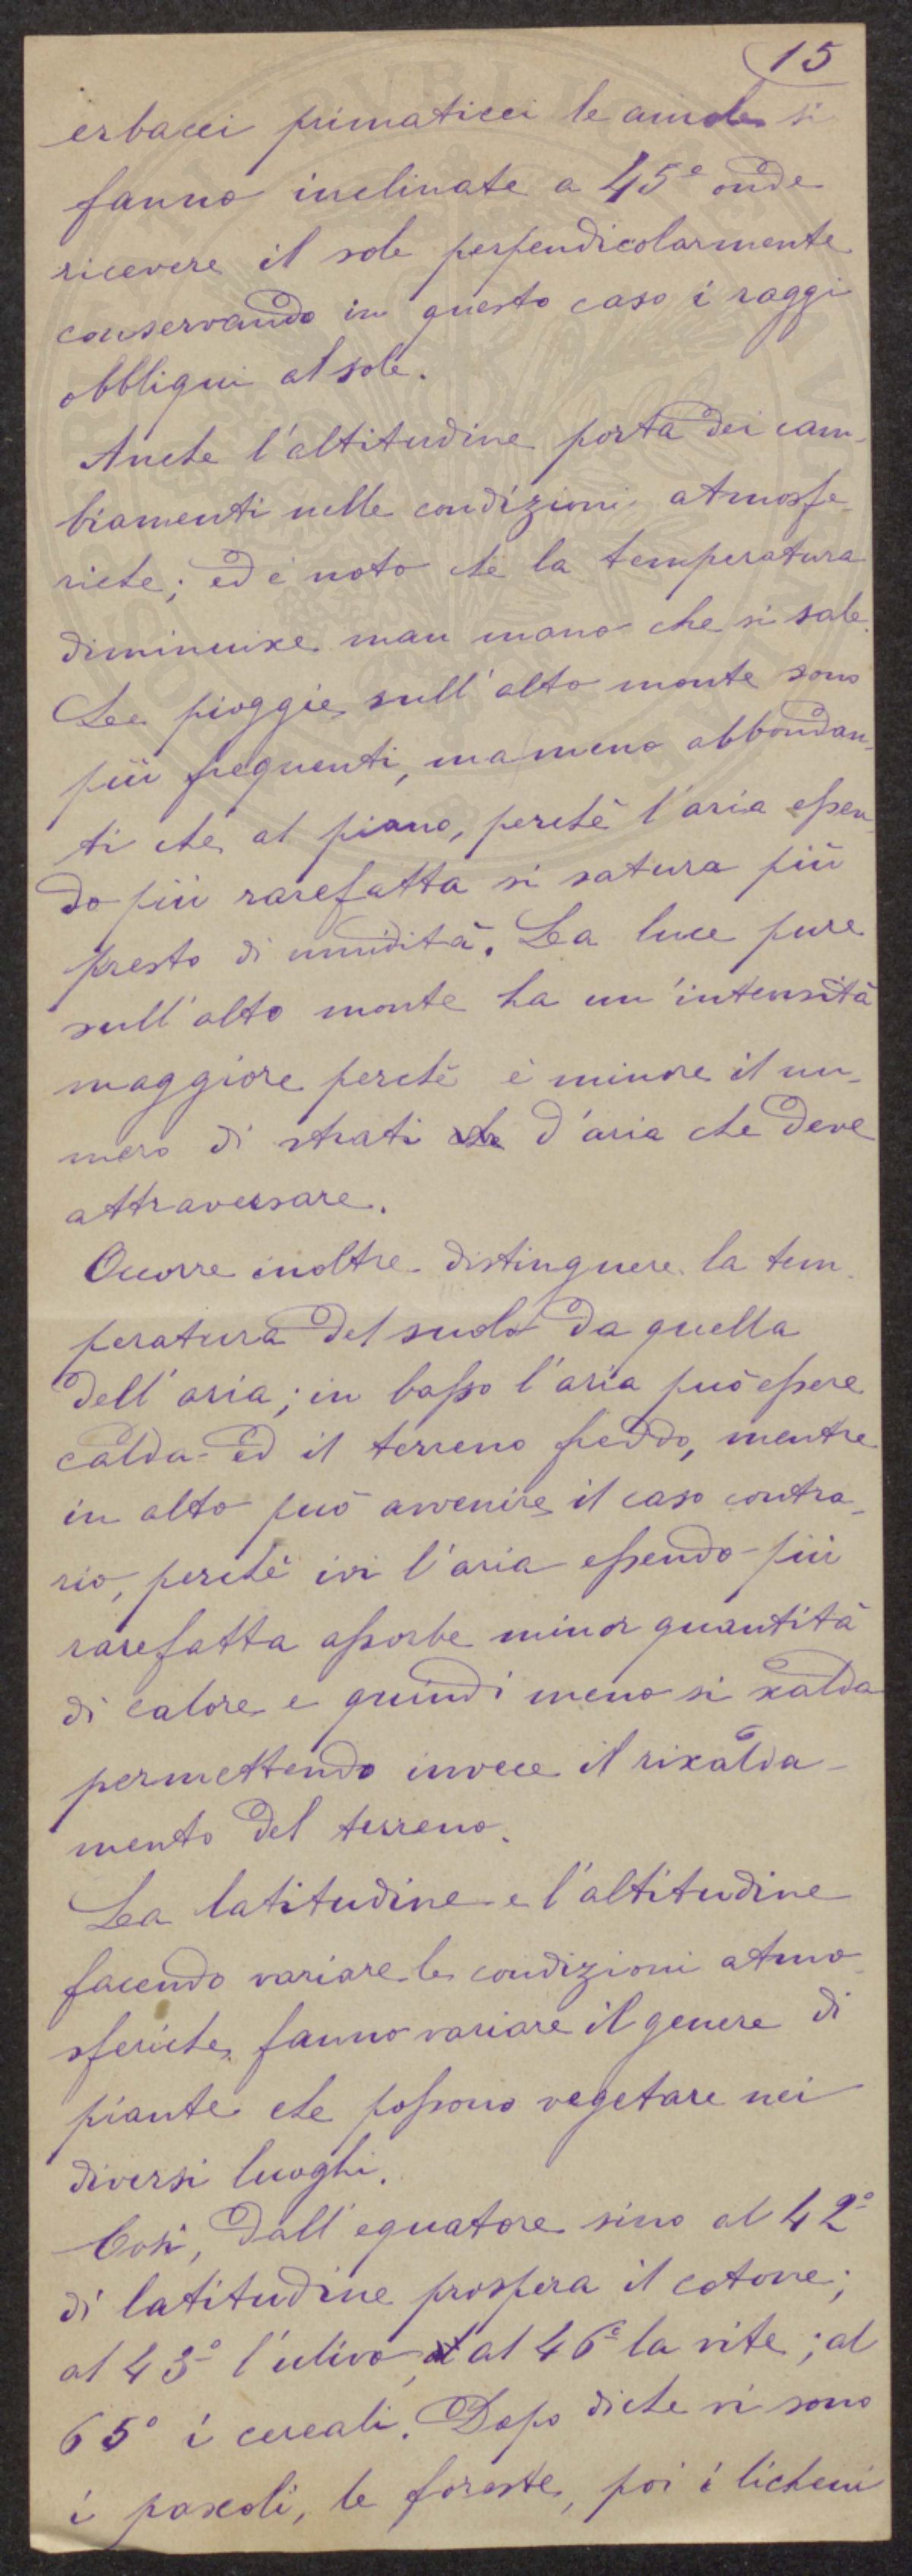 15
erbacei primaticci le aiuole si
fanno inclinate a 45° onde
ricevere il sole perpendicolarmente
conservando in questo caso i raggi
obbliqui al sole.
Anche l'altitudine porta dei cam-
biamenti nelle condizioni atmosfe-
riche; ed è noto che la temperatura
diminuisce man mano che si sale.
Le pioggie sull'alto monte sono
più frequenti, ma meno abbondan-
ti che al piano, perchè l'aria essen-
do più rarefatta si satura più
presto di umidità. La luce pure
sull'alto monte ha un'intensità
maggiore perchè è minore il nu-
mero di strati d'aria che deve
attraversare.
Occorre inoltre distinguere la tem-
peratura del suolo da quella
dell'aria; in basso l'aria può essere
calda ed il terreno freddo, mentre
in alto può avvenire il caso contra-
rio, perchè ivi l'aria essendo più
rarefatta assorbe minor quantità
di calore e quindi meno si scalda
permettendo invece il riscalda-
mento del terreno.
La latitudine e l'altitudine
facendo variare le condizioni atmo-
sferiche, fanno variare il genere di
piante che possono vegetare nei
diversi luoghi.
Così, dall'equatore sino al 42°
di latitudine prospera il cotone;
al 43° l'ulivo, al 46° la vite; al
65° i cereali. Dopo di che vi sono
i pascoli, le foreste, poi i licheni